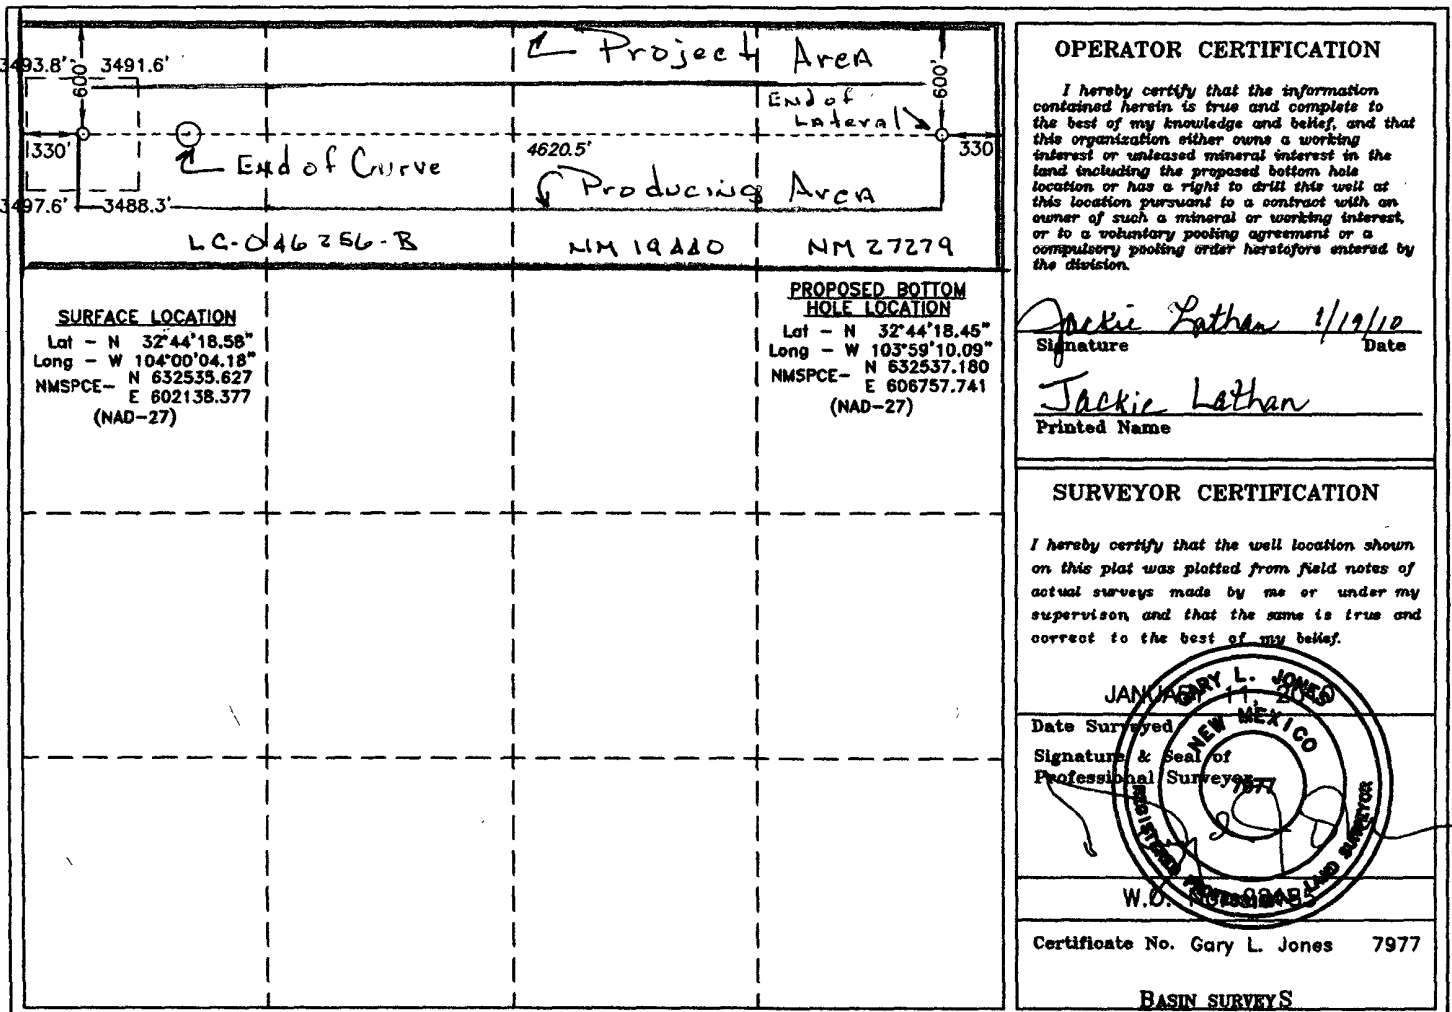 Project Area
3493.8' 3491.6'
600'
600'
End of
Lateral
330'
End of Curve
4620.5'
330
Producing Area
3497.6' 3488.3'
LC-046256-B NM 19440 NM 27279
SURFACE LOCATION
Lat - N 32°44'18.58"
Long - W 104°00'04.18"
NMSPCE- N 632535.627
E 602138.377
(NAD-27)
PROPOSED BOTTOM
HOLE LOCATION
Lat - N 32°44'18.45"
Long - W 103°59'10.09"
NMSPCE- N 632537.180
E 606757.741
(NAD-27)
OPERATOR CERTIFICATION
I hereby certify that the information
contained herein is true and complete to
the best of my knowledge and belief, and that
this organization either owns a working
interest or unleased mineral interest in the
land including the proposed bottom hole
location or has a right to drill this well at
this location pursuant to a contract with an
owner of such a mineral or working interest,
or to a voluntary pooling agreement or a
compulsory pooling order heretofore entered by
the division.
Jackie Lathan 1/19/10
Signature Date
Jackie Lathan
Printed Name
SURVEYOR CERTIFICATION
I hereby certify that the well location shown
on this plat was plotted from field notes of
actual surveys made by me or under my
supervison, and that the same is true and
correct to the best of my belief.
JANUARY 11, 2010
Date Surveyed
Signature & Seal of
Professional Surveyor
GARY L. JONES
NEW MEXICO
7977
REGISTERED PROFESSIONAL LAND SURVEYOR
W.O. No.
Certificate No. Gary L. Jones 7977
BASIN SURVEYS